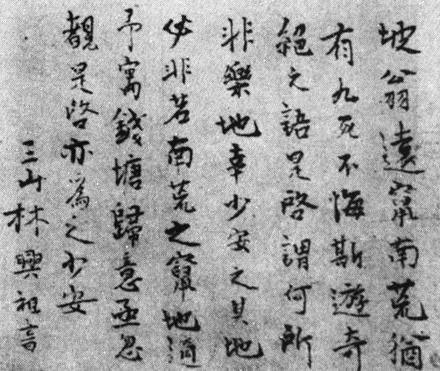 坡翁遠竄南荒猶
有九死不悔斯遊奇
絕之語是啓謂何所
非樂地幸少安之其地
必非若南荒之竄地適
予寓錢塘歸意亟忽
覩是啓亦為之少安
三山林興祖書